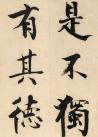 是不獨
有其德